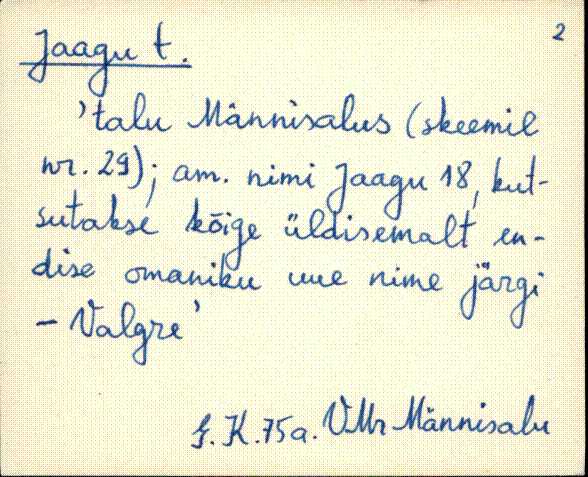 2
Jaagu t.
'talu Männisalus (skeemil
nr. 29); am. nimi Jaagu 18, kut-
sutakse kõige üldisemalt en-
dise omaniku uue nime järgi
- Valgre'
G. K. 75a. VMr Männisalu